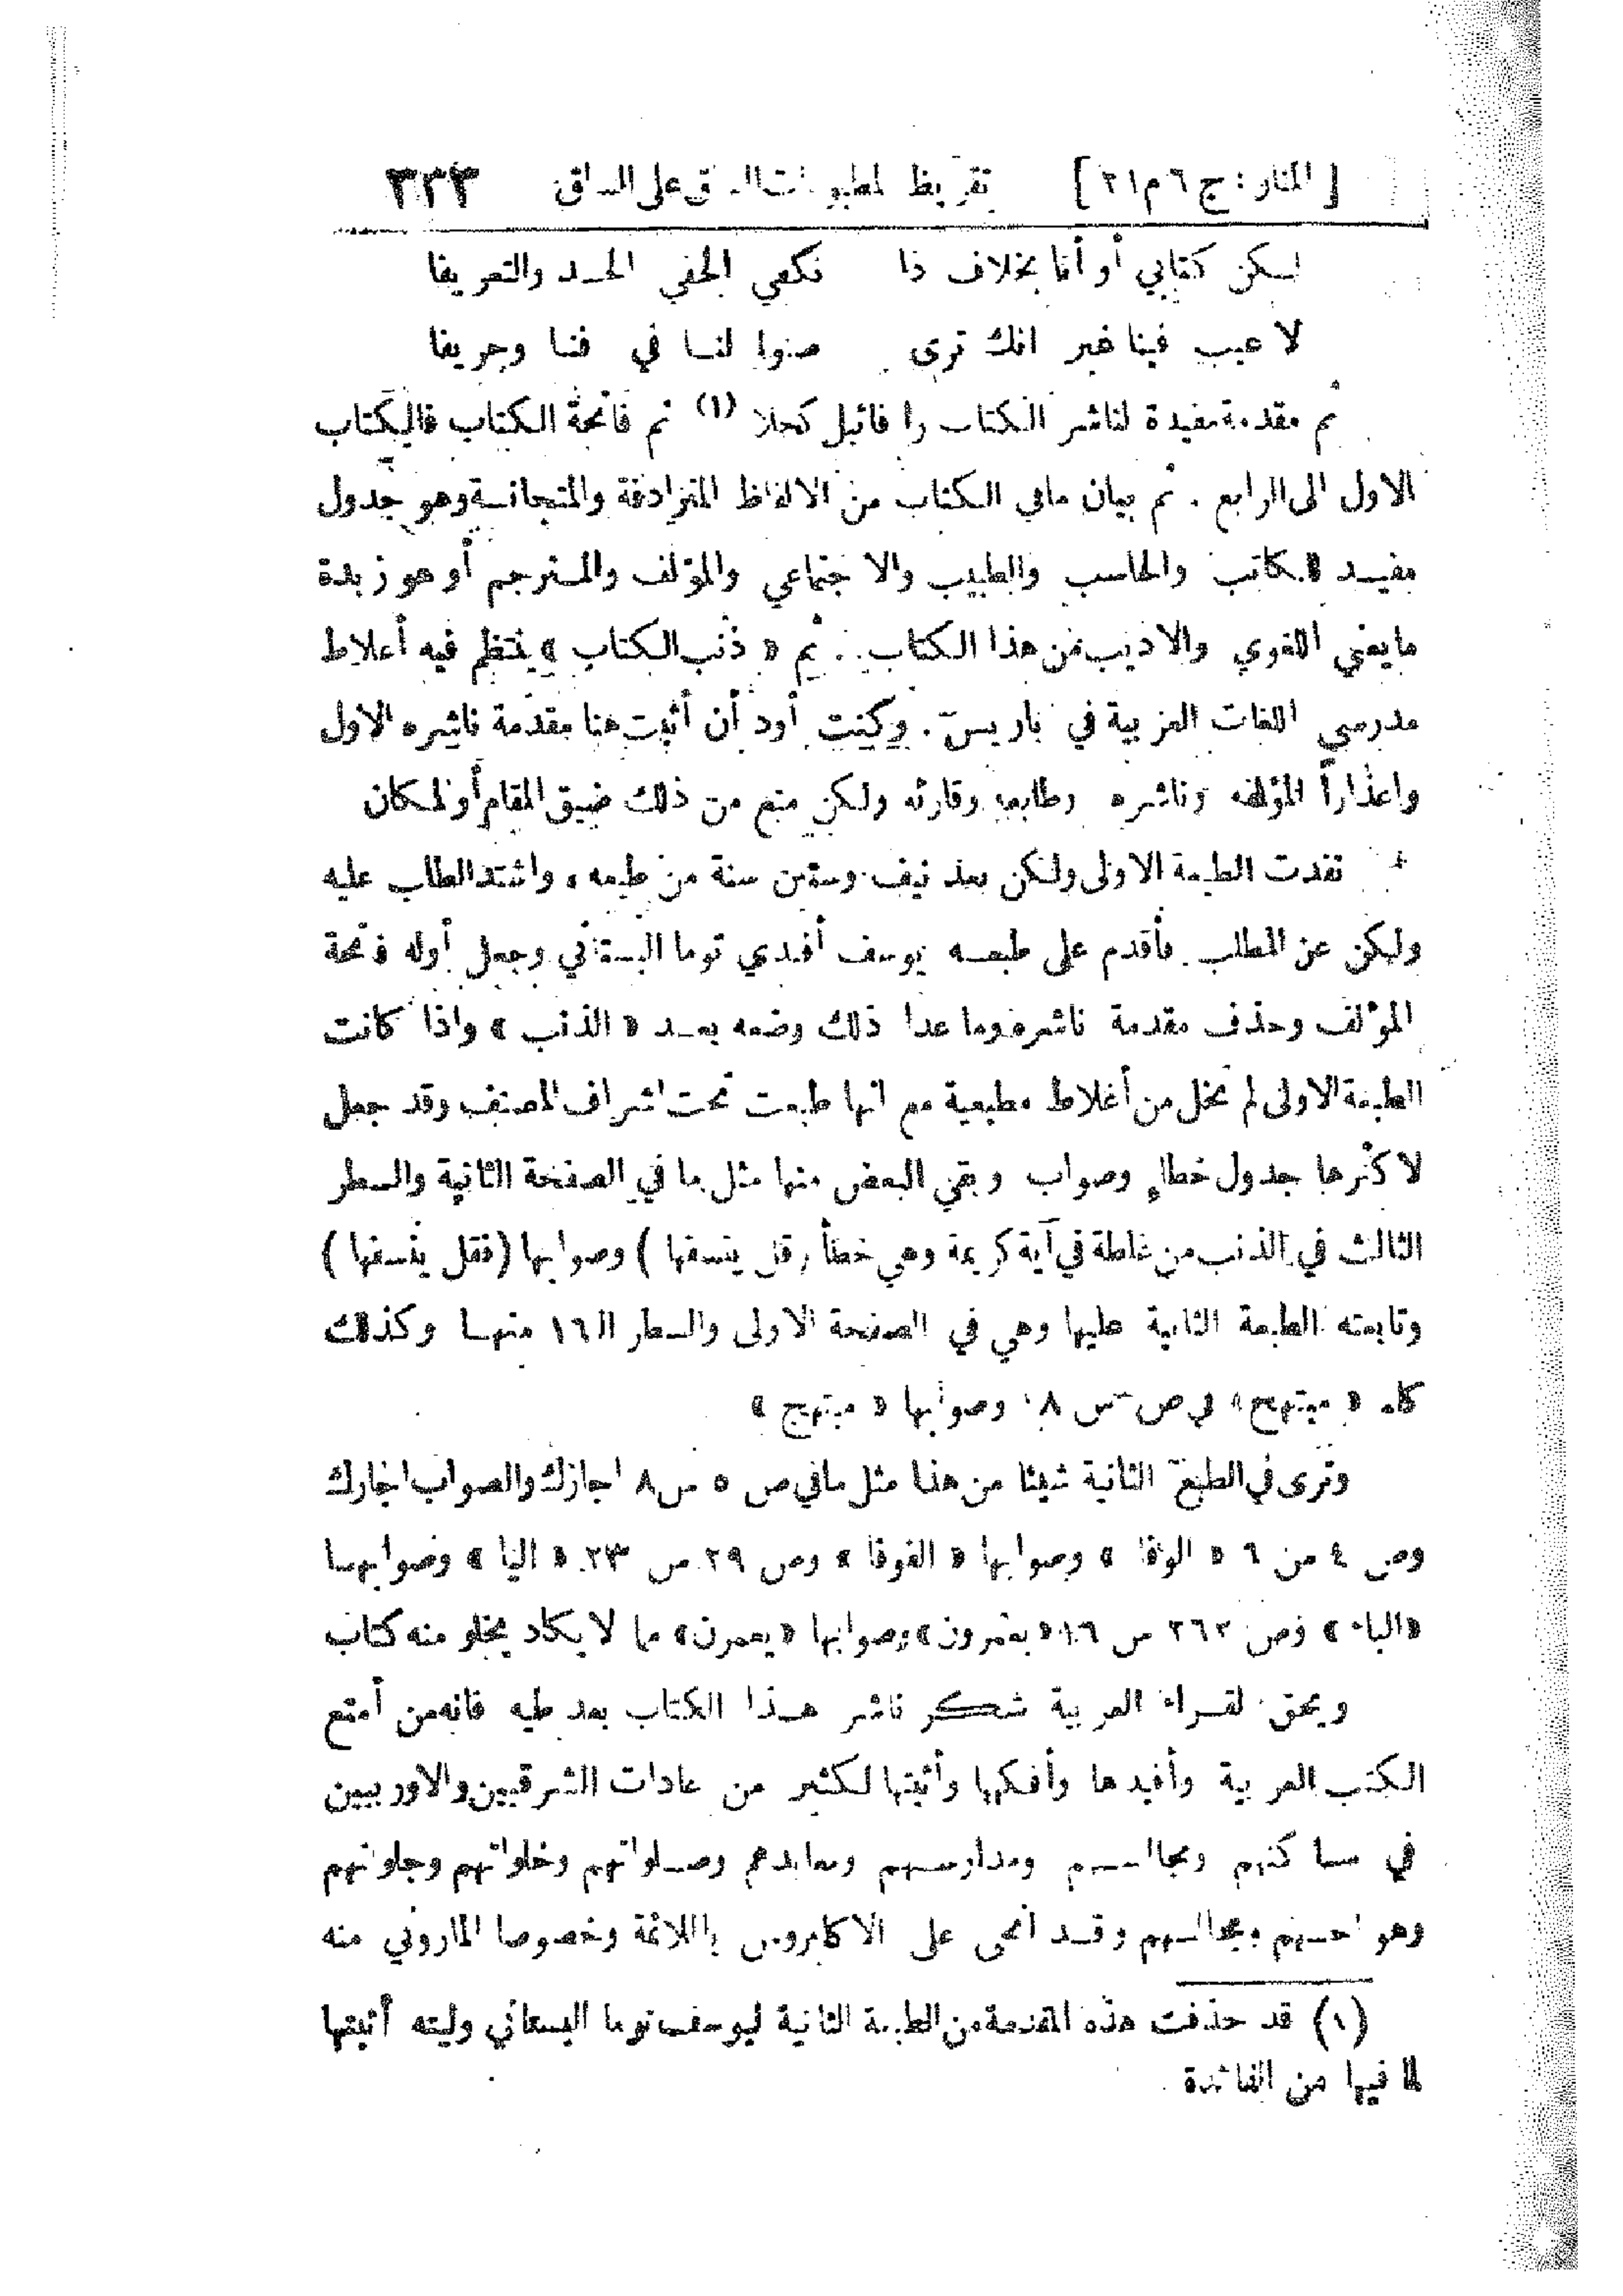 [المنار: ج ٦ م ٢١] تقريظ المطبوعات الساق على الساق ٣٢٣
لكن كتابي أو أنا بخلاف ذا نكفي الحفي الحد والتعريفا
لا عيب فينا غير انك ترى صنوا لنا في فننا وحريفا
ثم مقدمة مفيدة لناشر الكتاب رافائيل كحلا (١) ثم فاتحة الكتاب فالكتاب
الاول الى الرابع . ثم بيان مافي الكتاب من الالفاظ المترادفة والمتجانسة وهو جدول
مفيد للكاتب والحاسب والطبيب والاجتماعي والمؤلف والمترجم أو هو زبدة
مايعني اللغوي والاديب من هذا الكتاب . ثم « ذنب الكتاب » ينتظم فيه أغلاط
مدرسي اللغات العربية في باريس . وكنت أود أن أثبت هنا مقدمة ناشره الاول
واعذاراً لمؤلفه وناشره وطابعه وقارئه ولكن منع من ذلك ضيق المقام أو المكان
نفدت الطبعة الاولى ولكن بعد نيف وستين سنة من طبعه ، واشتد الطلب عليه
ولكن عن المطلب . فأقدم على طبعه يوسف أفندي توما البستاني وجعل أوله فاتحة
المؤلف وحذف مقدمة ناشره وما عدا ذلك وضعه بعد « الذنب » واذا كانت
الطبعة الاولى لم تخل من أغلاط مطبعية مع انها طبعت تحت اشراف المصنف وقد جعل
لاكثرها جدول خطاء وصواب وبقي البعض منها مثل ما في الصفحة الثانية والسطر
الثالث في الذنب من غلطة في آية كريمة وهي خطأ (قل ينسفها ) وصوابها (فقل ينسفها )
وتابعته الطبعة الثانية عليها وهي في الصفحة الاولى والسطر الـ١٦ منها وكذلك
كلمة « مبتهح » في ص س ٨ وصوابها « مبتهج »
وترى في الطبع الثانية شيئا من هذا مثل مافي ص ٥ س ٨ اجازك والصواب اجارك
وص ٤ من ٦ « الوفا » وصوابها « الفوفا » وص ٢٩ س ٢٣ « اليا » وصوابها
«الباء » وص ٢٦٢ س ١٦ « يعمرون » وصوابها « يعمرن » مما لا يكاد يخلو منه كتاب
ويحق لقراء العربية شكر ناشر هذا الكتاب بعد طيه فانه من أمتع
الكتب العربية وأفيدها وأفكهها وأثبتها لكثير من عادات الشرقيين والاوربيين
في مساكنهم ومجالسهم ومدارسهم ومعابدهم وصلواتهم وخلواتهم وجلواتهم
وهو احسنهم ومجالسهم وقد أنحى على الاكليروس باللائمة وخصوصا الماروني منه
(١) قد حذفت هذه المقدمة من الطبعة الثانية ليوسف توما البستاني وليته أثبتها
لما فيها من الفائدة